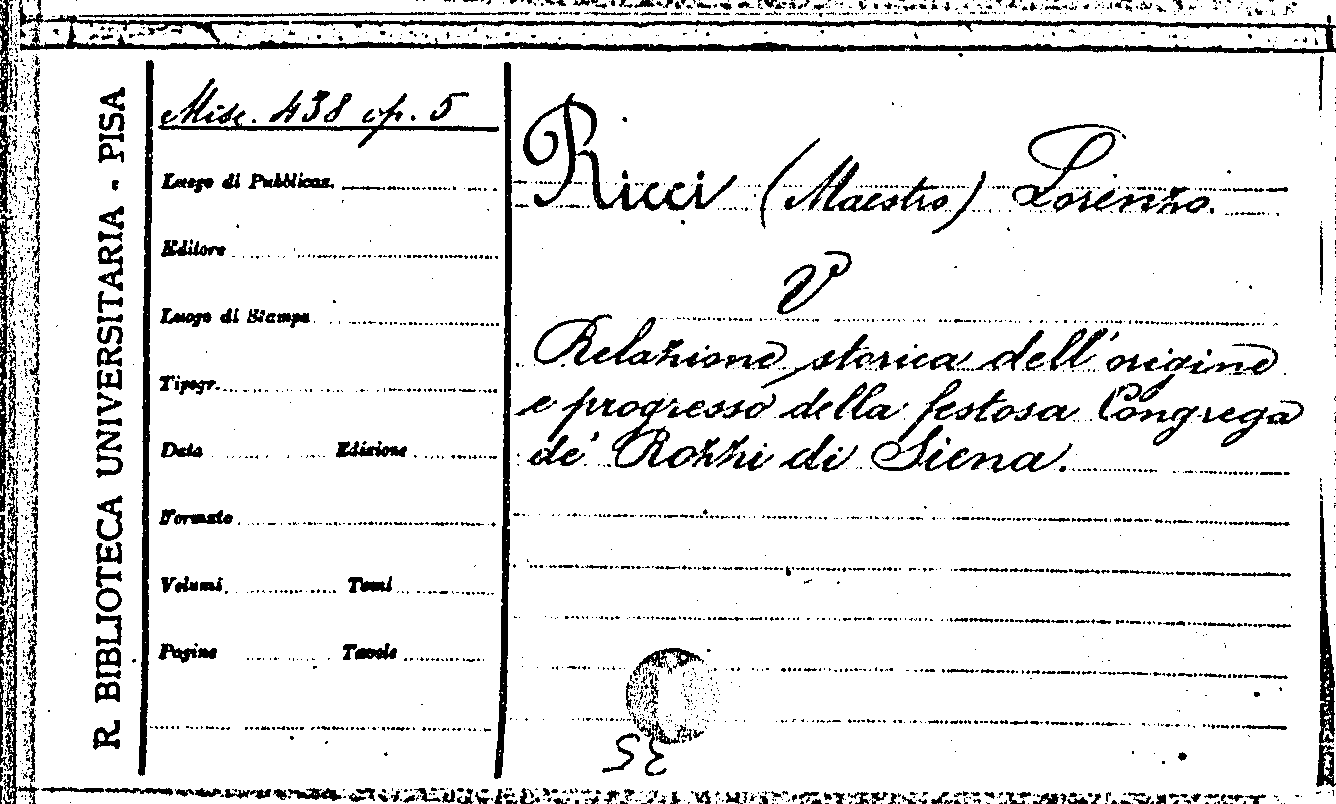 R. BIBLIOTECA UNIVERSITARIA - PISA
Misc. 438 op. 5
Luogo di Pubblicaz.
Editore
Luogo di Stampa
Tipogr.
Data Edizione
Formato
Volumi Tomi
Pagine Tavole
Ricci (Maestro) Lorenzo.
V
Relazione storica dell'origine
e progresso della festosa Congrega
de' Rozzi di Siena.
35